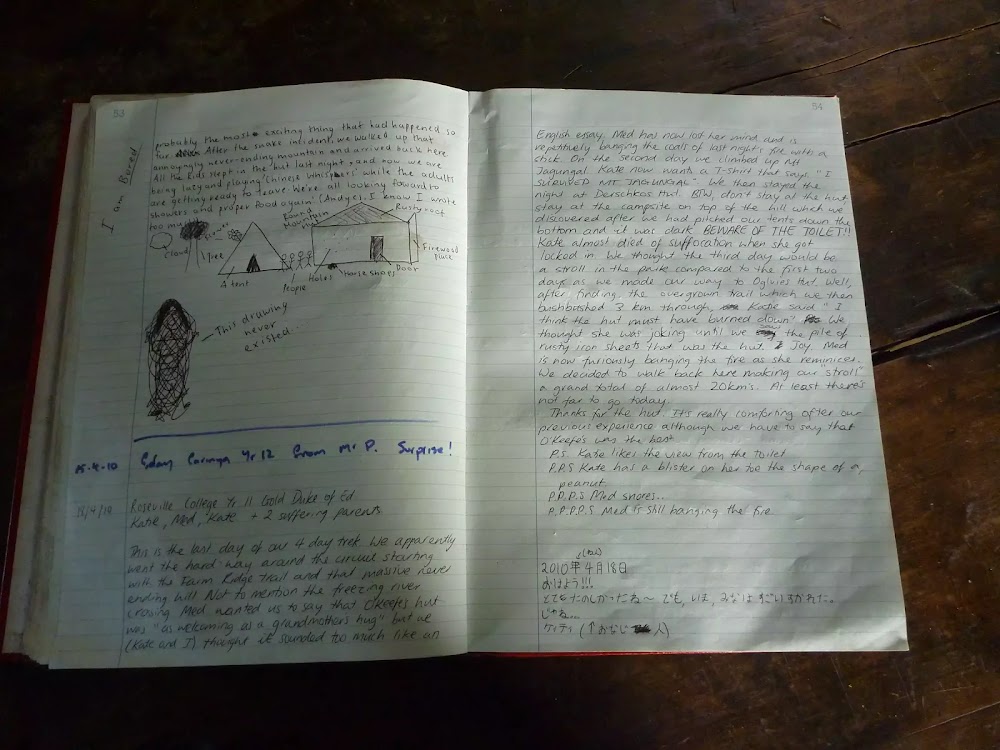 53
I am Bored
probably the most exciting thing that had happened so
far. After the snake incident, we walked up that
annoyingly never-ending mountain and arrived back here.
All the kids slept in the hut last night, and now we are
being lazy and playing 'Chinese whispers' while the adults
are getting ready to leave. We're all looking forward to
showers and proper food again! (Andy C. I know I wrote
too much)
Flower
Cloud
Tree
A tent
People
Mountain
Rusty roof
Holes
Horse shoes
Door
Firewood
place
This drawing
never
existed...
15-4-10 Gday Caringa Yr 12 From Mr P. Surprise!
18/4/10 Roseville College Yr 11 Gold Duke of Ed
Katie, Med, Kate + 2 suffering parents.
This is the last day of our 4 day trek. We apparently
went the hard way around the circuit starting
with the Farm Ridge trail and that massive never
ending hill. Not to mention the freezing river
crossing. Med wanted us to say that O'Keefes hut
was "as welcoming as a grandmothers hug" but we
(Kate and I) thought it sounded too much like an
54
English essay. Med has now lost her mind and is
repetitively banging the coals of last night's fire with a
stick. On the second day we climbed up Mt
Jagungal. Kate now wants a T-shirt that says "I
SURVIVED MT JAGUNGAL". We then stayed the
night at Derschkos Hut. BTW, don't stay at the hut,
stay at the campsite on top of the hill which we
discovered after we had pitched our tents down the
bottom and it was dark. BEWARE OF THE TOILET!!
Kate almost died of suffocation when she got
locked in. We thought the third day would be
a stroll in the park compared to the first two
days as we made our way to Oglvies Hut. Well,
after finding the overgrown trail which we then
bushbashed 3 km through, Katie said "I
think the hut must have burned down". We
thought she was joking until we the pile of
rusty iron sheets that was the hut. Joy. Med
is now furiously banging the fire as she reminices.
We decided to walk back here making our "stroll"
a grand total of almost 20km's. At least there's
not far to go today.
Thanks for the hut. It's really comforting after our
previous experience although we have to say that
O'Keefes was the best
P.S. Kate likes the view from the toilet
P.P.S Kate has a blister on her toe the shape of a
peanut.
P.P.P.S Med snores...
P.P.P.P.S Med is still banging the fire
(ねん)
2010年4月18日
おはよう!!!
とてもたのしかったね〜 でも, いま, みなは
じゃね...
ケイティ (↑おなじ 人)